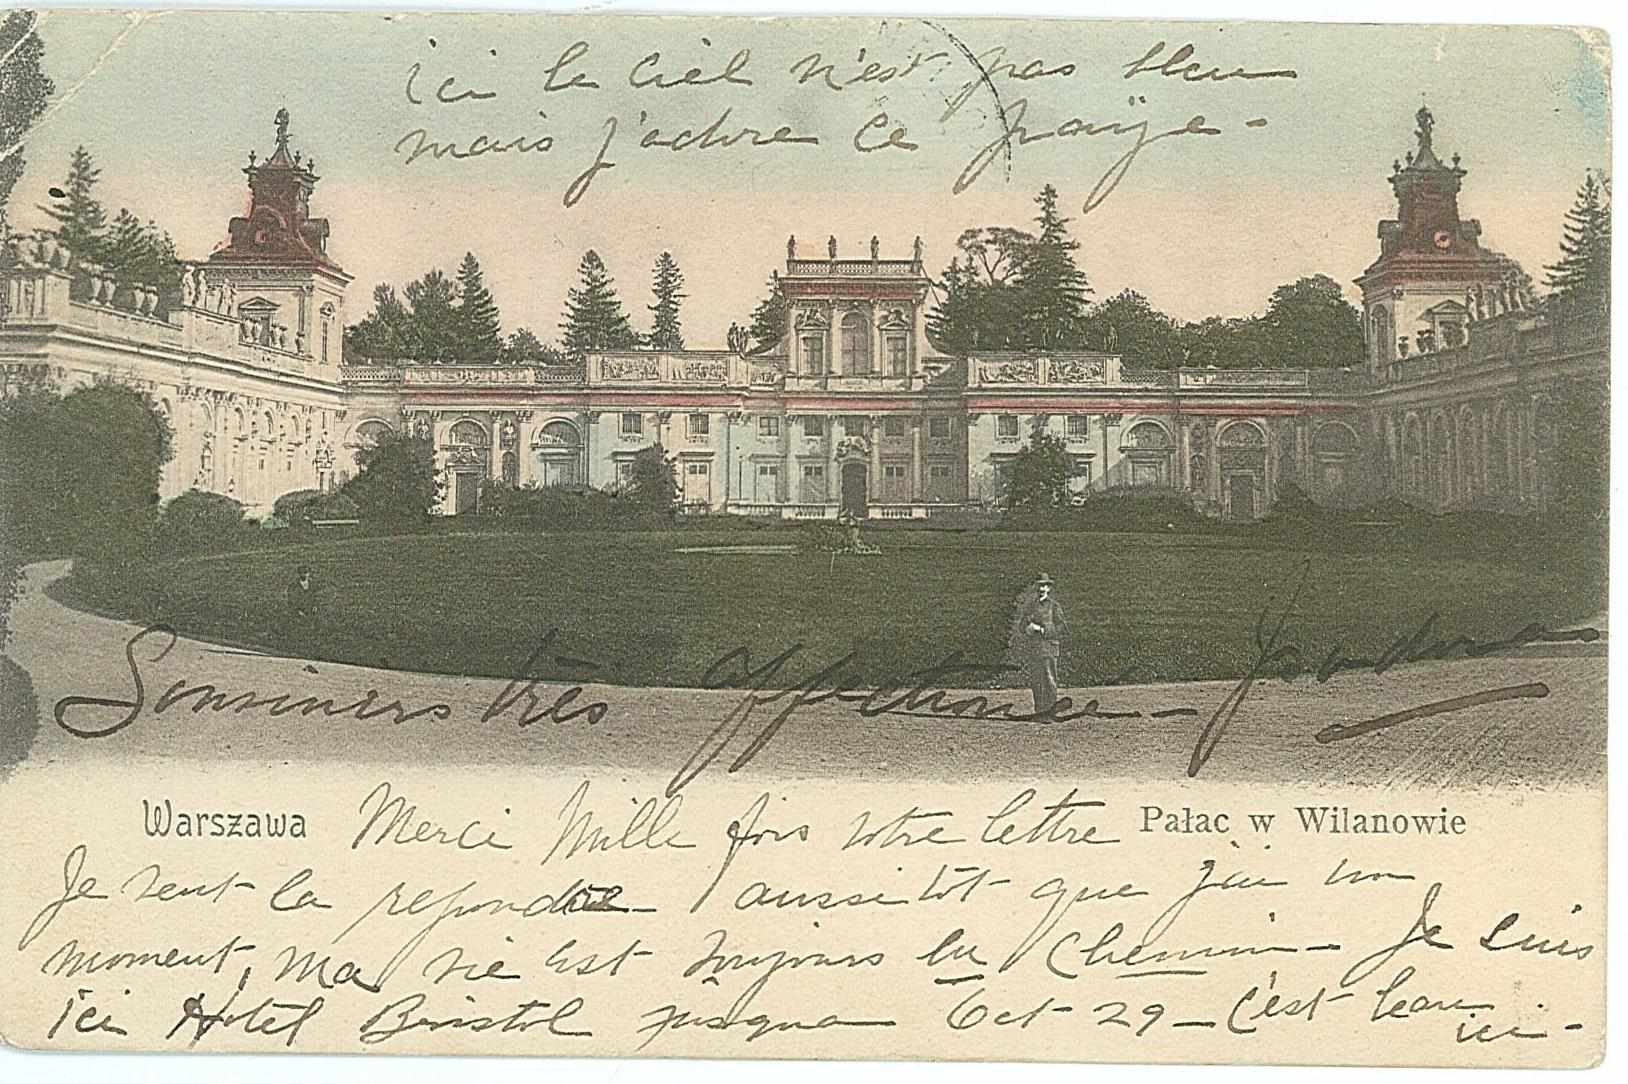 ici le ciel n'est pas bleu
mais j'adore ce payse -
Souvenirs très affectionée -
Warszawa
Pałac w Wilanowie
Merci Mille fois votre lettre
Je veut la repondre - aussitôt que j'ai un
moment, ma vie est toujours en chemin - Je suis
ici Hotel Bristol jusqua Oct - 29 - c'est beau
ici -